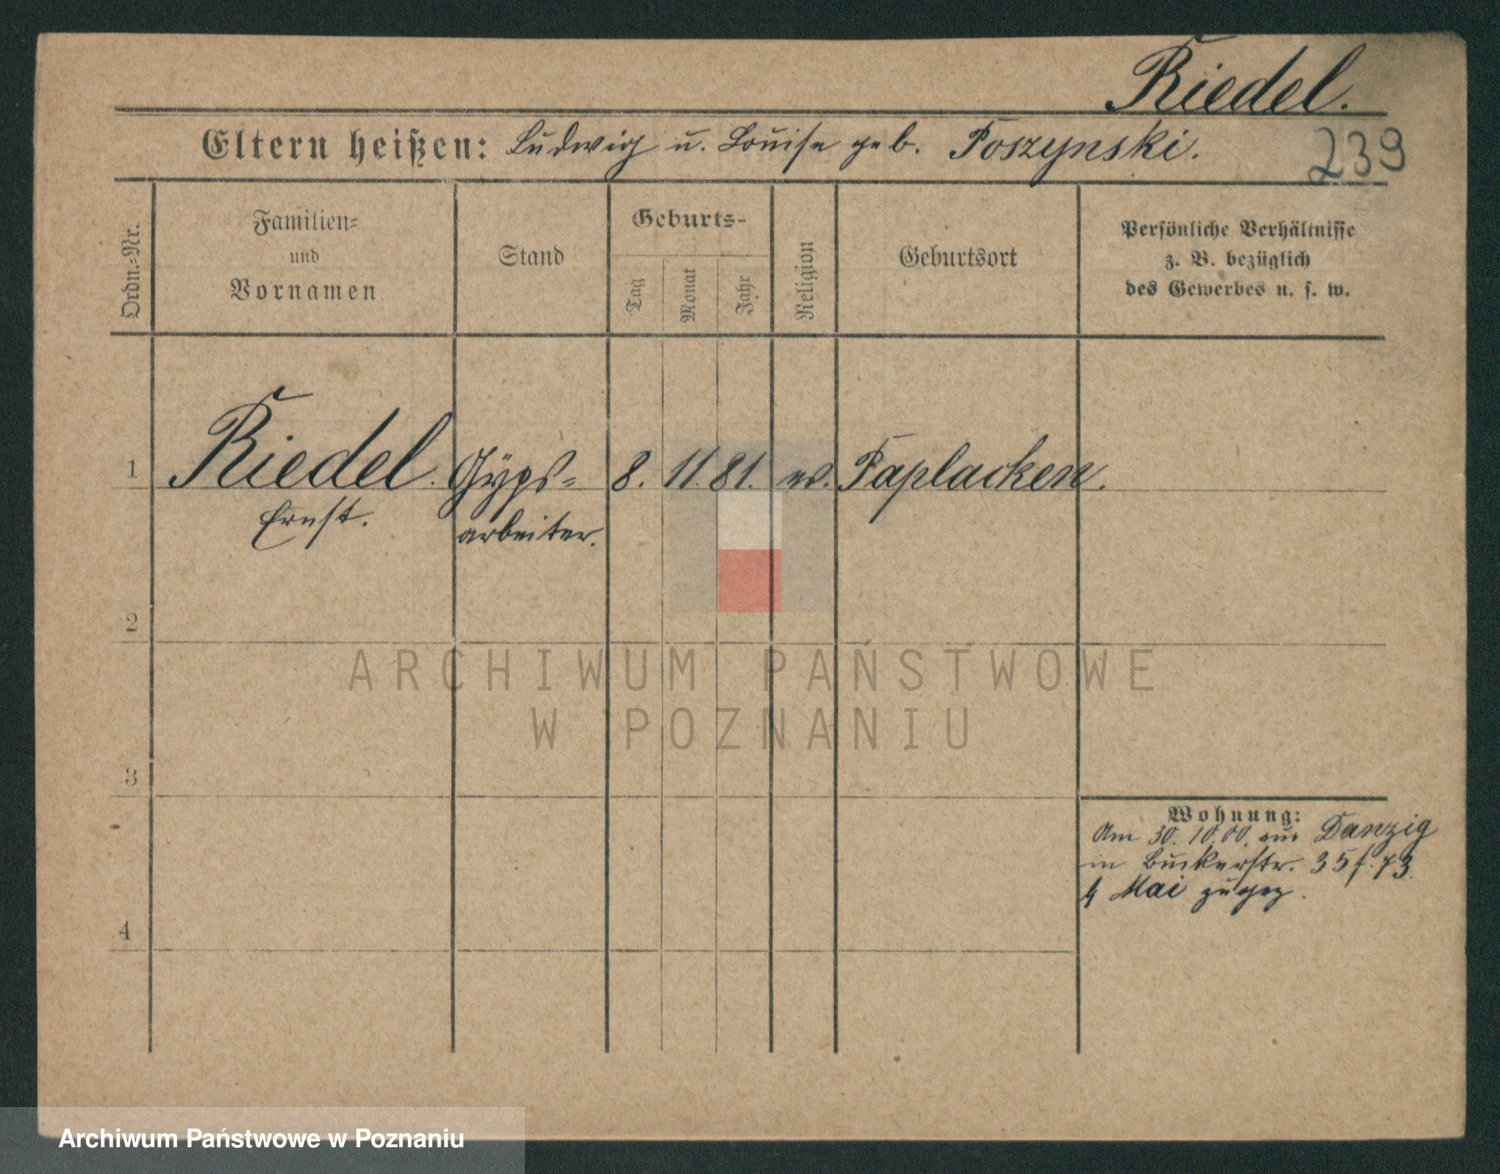 Riedel.
Eltern heißen: Ludwig u. Louise geb. Poszynski.
239
Ordn.-Nr.
Familien-
und
Vornamen
Stand
Geburts-
Tag
Monat
Jahr
Religion
Geburtsort
Persönliche Verhältnisse
z. B. bezüglich
des Gewerbes u. s. w.
1 Riedel. Gyps- 8. 11. 81. ev. Paplacken.
Ernst. arbeiter.
2
3
4
Wohnung:
Am 30. 10. 00. aus Danzig
in 35 f. 73
Mai zugez.
ARCHIWUM PAŃSTWOWE
W POZNANIU
Archiwum Państwowe w Poznaniu